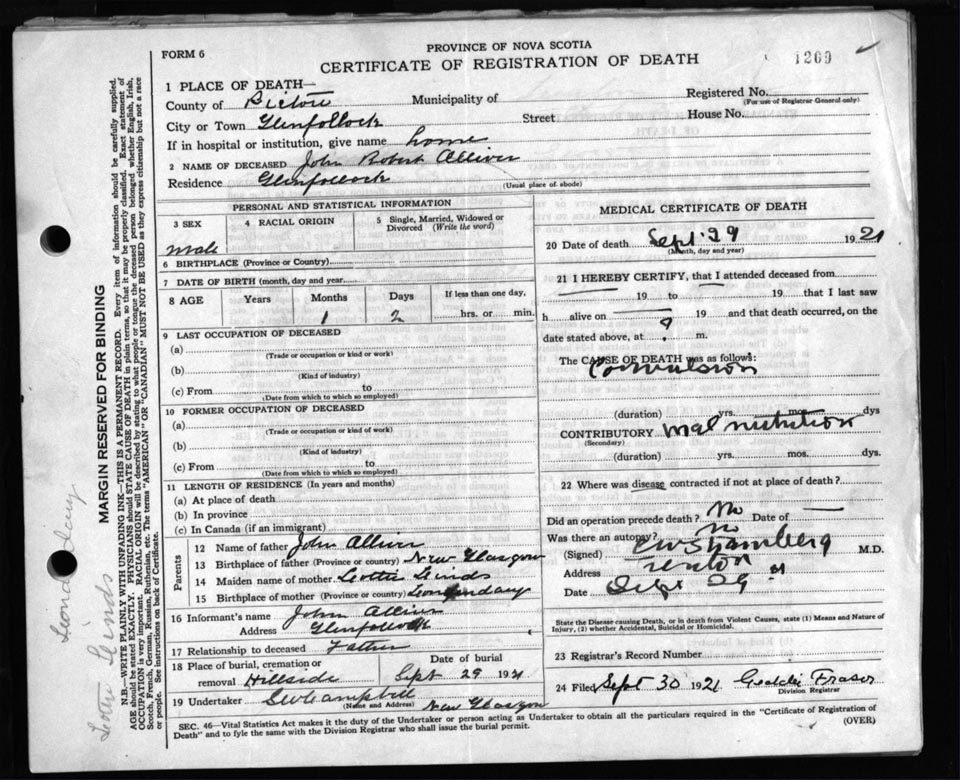 FORM 6
PROVINCE OF NOVA SCOTIA
CERTIFICATE OF REGISTRATION OF DEATH
1209
1 PLACE OF DEATH—
County of Pictou Municipality of Registered No.
(For use of Registrar General only)
City or Town Glenfollock Street House No.
If in hospital or institution, give name home
2 NAME OF DECEASED John Robert Alliver
Residence Glenfollock
(Usual place of abode)
PERSONAL AND STATISTICAL INFORMATION
3 SEX 4 RACIAL ORIGIN 5 Single, Married, Widowed or Divorced (Write the word)
Male
6 BIRTHPLACE (Province or Country)
7 DATE OF BIRTH (month, day and year)
8 AGE Years Months Days If less than one day,
1 2 hrs. or min.
9 LAST OCCUPATION OF DECEASED
(a)
(Trade or occupation or kind or work)
(b)
(Kind of industry)
(c) From to
(Date from which to which so employed)
10 FORMER OCCUPATION OF DECEASED
(a)
(Trade or occupation or kind of work)
(b)
(Kind of industry)
(c) From to
(Date from which to which so employed)
11 LENGTH OF RESIDENCE (In years and months)
(a) At place of death
(b) In province
(c) In Canada (if an immigrant)
Parents
12 Name of father John Alliver
13 Birthplace of father (Province or country) New Glasgow
14 Maiden name of mother Lottie Linds
15 Birthplace of mother (Province or country)
16 Informant's name John Alliver
Address Glenfollock
17 Relationship to deceased Father
18 Place of burial, cremation or Date of burial
removal Hillside Sept 29 1921
19 Undertaker
(Name and Address) New Glasgow
MEDICAL CERTIFICATE OF DEATH
20 Date of death Sept 29 1921
(Month, day and year)
21 I HEREBY CERTIFY, that I attended deceased from
19 to 19 that I last saw
h alive on 19 and that death occurred, on the
date stated above, at m.
The CAUSE OF DEATH was as follows:
Convulsion
(duration) yrs. mos. dys
CONTRIBUTORY Malnutrition
(Secondary)
(duration) yrs. mos. dys.
22 Where was disease contracted if not at place of death?
Did an operation precede death? No Date of —
Was there an autopsy? No
(Signed) M.D.
Address
Date Sept 29
State the Disease causing Death, or in death from Violent Causes, state (1) Means and Nature of
Injury, (2) whether Accidental, Suicidal or Homicidal.
23 Registrar's Record Number
24 Filed Sept 30 1921 Fraser
Division Registrar
SEC. 46—Vital Statistics Act makes it the duty of the Undertaker or person acting as Undertaker to obtain all the particulars required in the "Certificate of Registration of
Death" and to fyle the same with the Division Registrar who shall issue the burial permit.
(OVER)
MARGIN RESERVED FOR BINDING
N.B.—WRITE PLAINLY WITH UNFADING INK—THIS IS A PERMANENT RECORD. Every item of information should be carefully supplied.
AGE should be stated EXACTLY. PHYSICIANS should STATE CAUSE OF DEATH in plain terms, so that it may be properly classified. Exact statement of
OCCUPATION is very important. RACIAL ORIGIN will be described by stating to what people or tongue the deceased person belonged whether English, Irish,
Scotch, French, German, Russian, Ruthenian, etc. The terms "AMERICAN" OR "CANADIAN" MUST NOT BE USED as they express citizenship but not a race
or people. See instructions on back of Certificate.
Lottie Linds